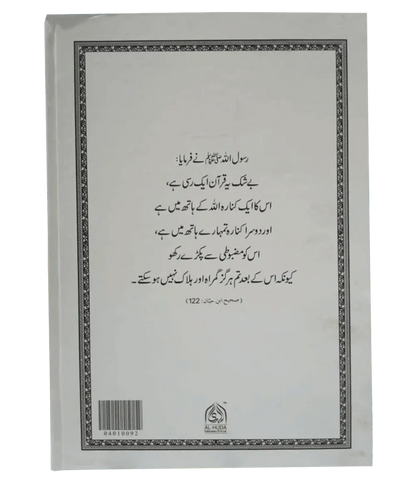 رسول اللہ ﷺ نے فرمایا:
بے شک یہ قرآن ایک رسی ہے،
اس کا ایک کنارہ اللہ کے ہاتھ میں ہے
اور دوسرا کنارہ تمہارے ہاتھ میں ہے،
اس کو مضبوطی سے پکڑے رکھو
کیونکہ اس کے بعد تم ہرگز گمراہ اور ہلاک نہیں ہو سکتے۔
(صحیح ابن حبان: 122)
04010092
AL-HUDA